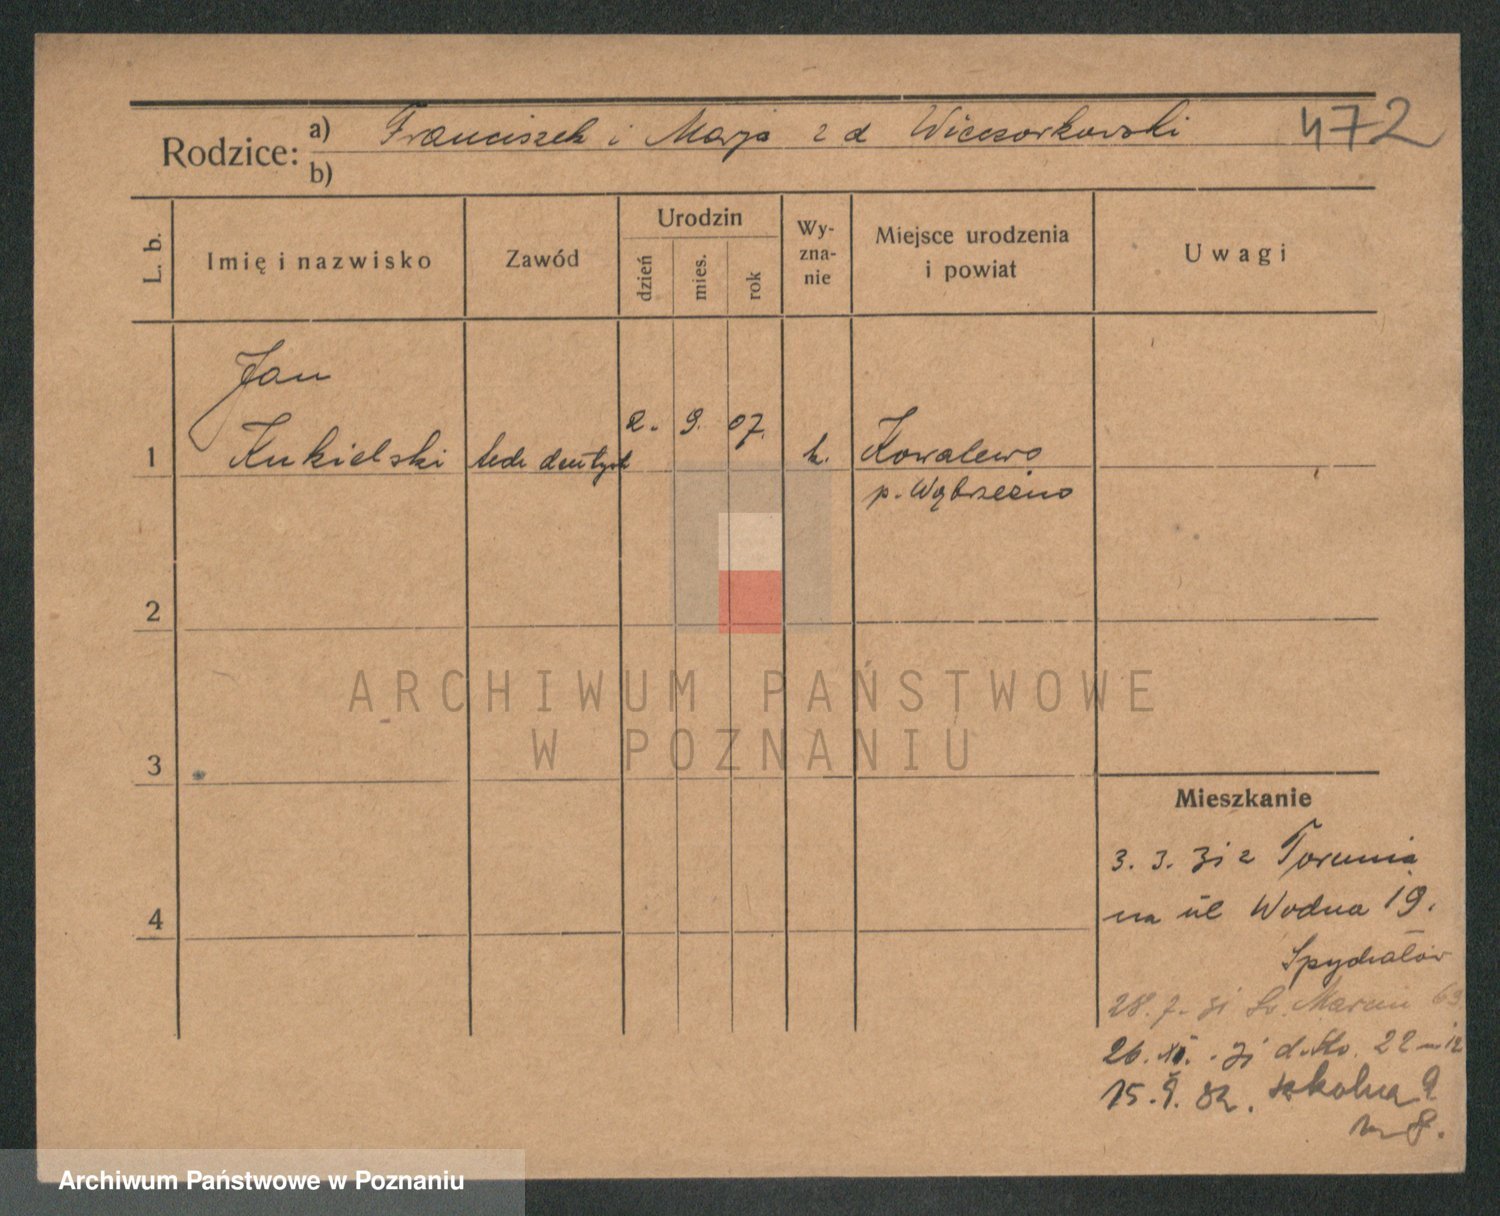 Rodzice: a) Franciszek i Marja z d Wieczorkowski 472
b)
L. b. Imię i nazwisko Zawód Urodzin dzień mies. rok Wy-zna-nie Miejsce urodzenia i powiat Uwagi
Jan
1 Kukielski tech dentyst 2. 9. 07. k. Kowalewo
p. Wąbrzeźno
2
ARCHIWUM PAŃSTWOWE
W POZNANIU
3
Mieszkanie
3. 3. 31 z Torunia
4 na ul Wodna 19.
28. 7. 31 Św. Marcin 69
26. XI. 31 22 m 12
15. 9. 32. Szkolna 9
m 8.
Archiwum Państwowe w Poznaniu